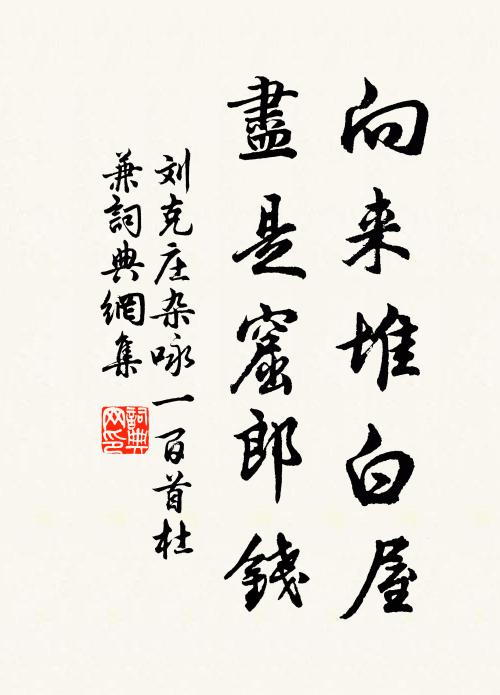 向来堆白屋
盡是窟郎錢
刘克庄杂咏一百首杜
兼詞典網集
詞典
网印